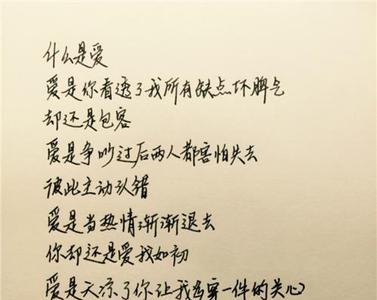 什么是爱
爱是你看透了我所有缺点坏脾气
却还是包容
爱是争吵过后两人都害怕失去
彼此主动认错
爱是当热情渐渐退去
你却还是爱我如初
爱是天凉了你让我多穿一件的关心